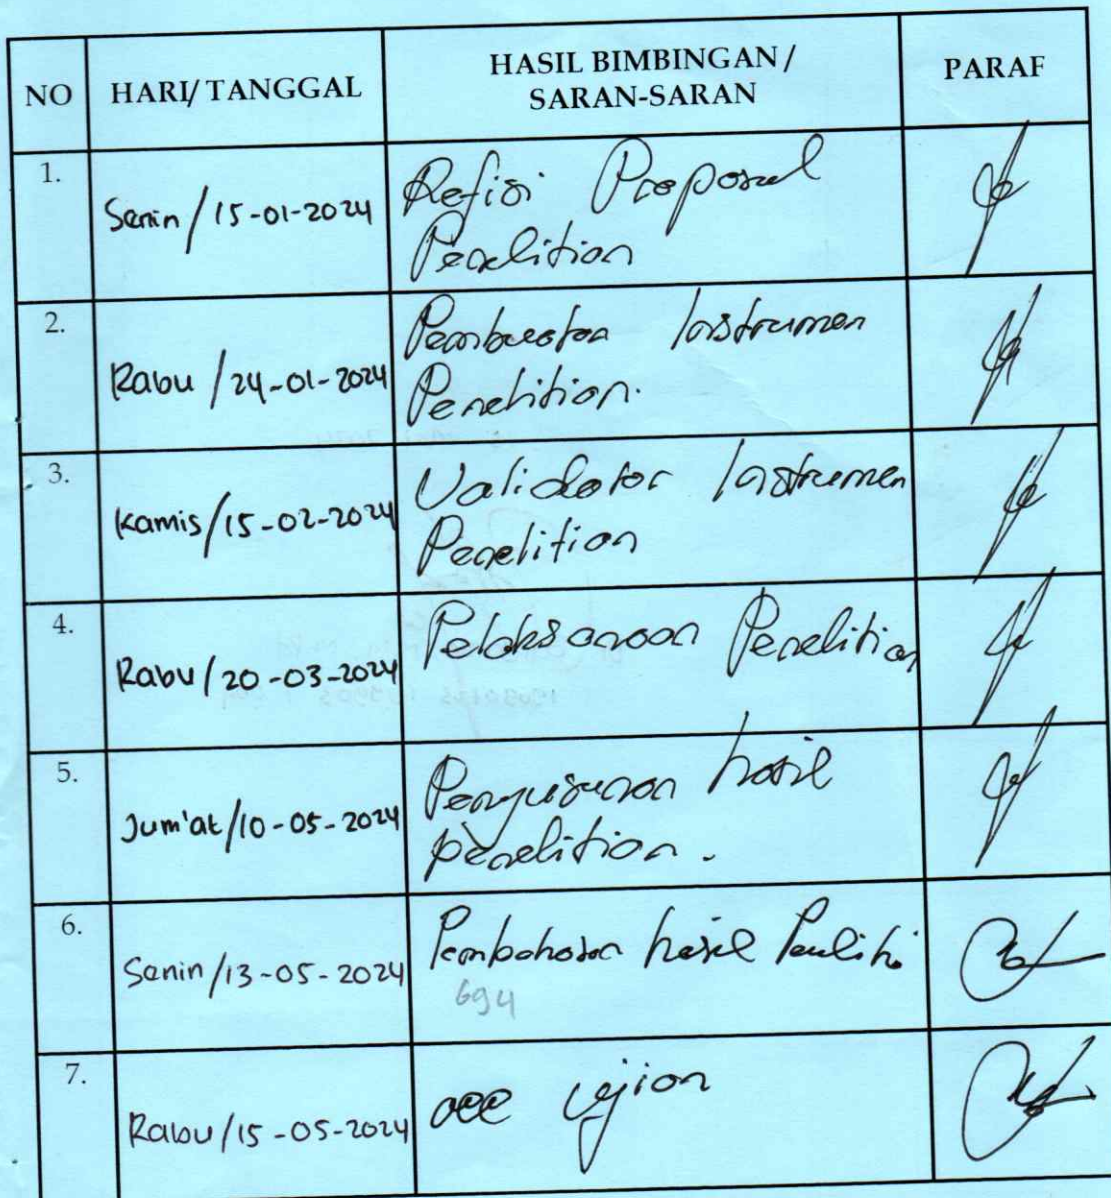 NO HARI/TANGGAL HASIL BIMBINGAN/ PARAF
SARAN-SARAN
1. Senin / 15-01-2024 Refisi Proposal
Penelitian
2. Rabu / 24-01-2024 Pembuatan Instrumen
Penelitian.
3. Kamis / 15-02-2024 Validator Instrumen
Penelitian
4. Rabu / 20-03-2024 Pelaksanaan Penelitian
5. Jum'at / 10-05-2024 Penyusunan hasil
penelitian.
6. Senin / 13-05-2024 Pembahasan hasil Peneliti
7. Rabu / 15-05-2024 acc ujian